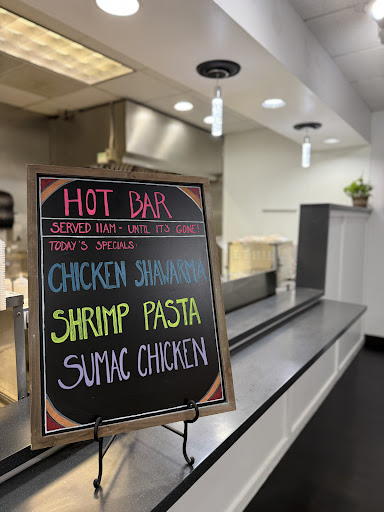 HOT BAR
SERVED 11AM - UNTIL IT'S GONE!
TODAY'S SPECIALS:
CHICKEN SHAWARMA
SHRIMP PASTA
SUMAC CHICKEN